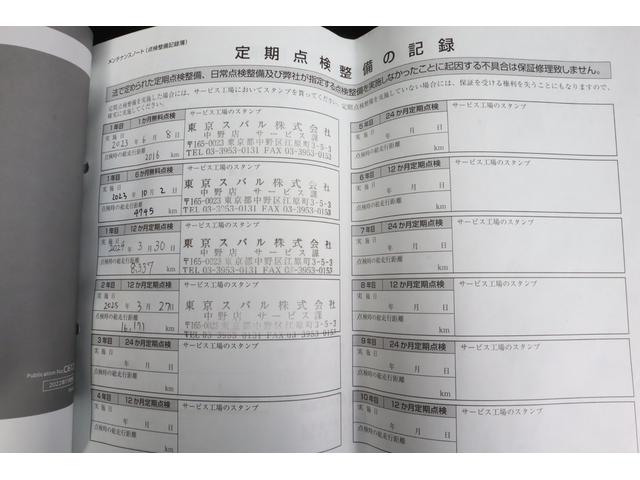 メンテナンスノート(点検整備記録簿)
定期点検整備の記録
法で定められた定期点検整備、日常点検整備及び弊社が指定する点検整備を実施しなかったことに起因する不具合は保証修理致しません。
定期点検整備を実施した場合には、サービス工場においてスタンプを貰ってください。定期点検整備を実施していない場合には、保証を受ける権利を失うこともありますので、
確実に実施してください。
1年目 1か月無料点検 サービス工場のスタンプ
実施日
2023年 6月 8日
点検時の総走行距離
2016 km
東京スバル株式会社
中野店 サービス課
〒165-0023 東京都中野区江原町3-5-3
TEL 03-3953-0131 FAX 03-3953-0132
1年目 6か月無料点検 サービス工場のスタンプ
実施日
2023年 10月 2日
点検時の総走行距離
4945 km
東京スバル株式会社
中野店 サービス課
〒165-0023 東京都中野区江原町3-5-3
TEL 03-3953-0131 FAX 03-3953-0132
1年目 12か月定期点検 サービス工場のスタンプ
実施日
2024年 3月 30日
点検時の総走行距離
8,357 km
東京スバル株式会社
中野店 サービス課
〒165-0023 東京都中野区江原町3-5-3
TEL 03-3953-0131 FAX 03-3953-0132
2年目 12か月定期点検 サービス工場のスタンプ
実施日
2025年 3月 27日
点検時の総走行距離
16,171 km
東京スバル株式会社
中野店 サービス課
〒165-0023 東京都中野区江原町3-5-3
TEL 03-3953-0131 FAX 03-3953-0132
3年目 24か月定期点検 サービス工場のスタンプ
実施日
年 月 日
点検時の総走行距離
km
4年目 12か月定期点検 サービス工場のスタンプ
実施日
年 月 日
点検時の総走行距離
km
5年目 24か月定期点検 サービス工場のスタンプ
実施日
年 月 日
点検時の総走行距離
km
6年目 12か月定期点検 サービス工場のスタンプ
実施日
年 月 日
点検時の総走行距離
km
7年目 24か月定期点検 サービス工場のスタンプ
実施日
年 月 日
点検時の総走行距離
km
8年目 12か月定期点検 サービス工場のスタンプ
実施日
年 月 日
点検時の総走行距離
km
9年目 24か月定期点検 サービス工場のスタンプ
実施日
年 月 日
点検時の総走行距離
km
10年目 12か月定期点検 サービス工場のスタンプ
実施日
年 月 日
点検時の総走行距離
km
Publication No.